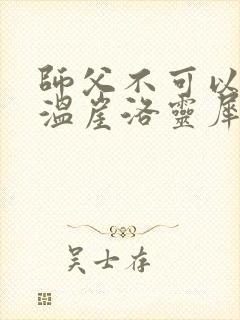 師父不可以
溫崖洛靈犀
吴士存